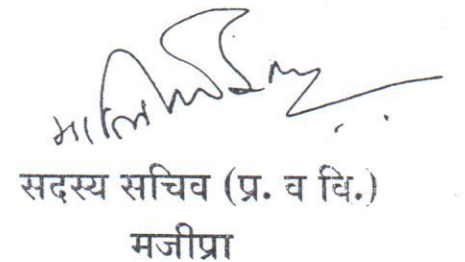 सदस्य सचिव (प्र. व वि.)
मजीप्रा